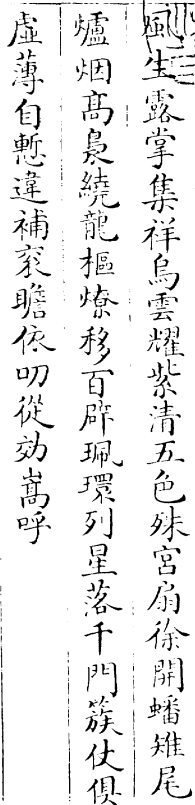 風生露掌集祥烏雲耀紫清五色殊宮扇徐開蟠雉尾
爐烟高裊繞龍樞燎移百辟珮環列星落千門簇仗俱
虛薄自慙違補衮瞻依叨從効嵩呼